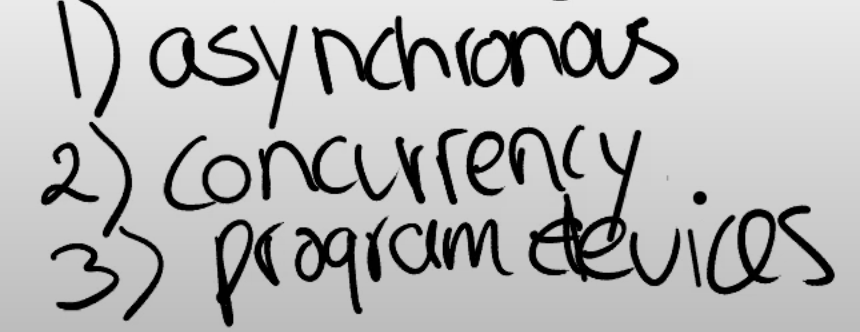 1) asynchronous
2) concurrency
3) program devices